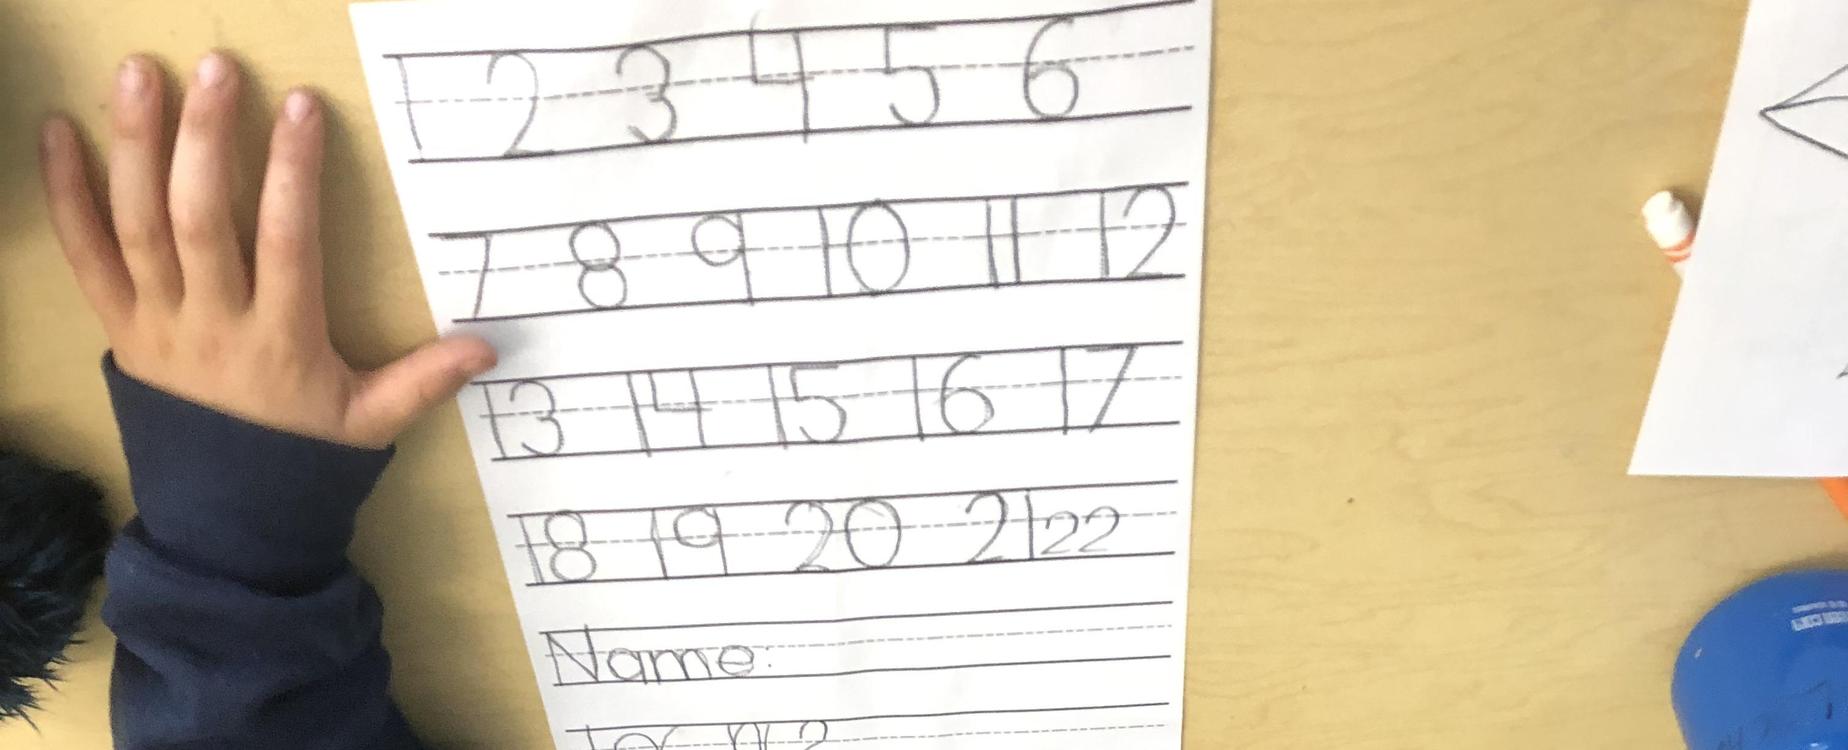 1 2 3 4 5 6
7 8 9 10 11 12
13 14 15 16 17
18 19 20 21 22
Name: